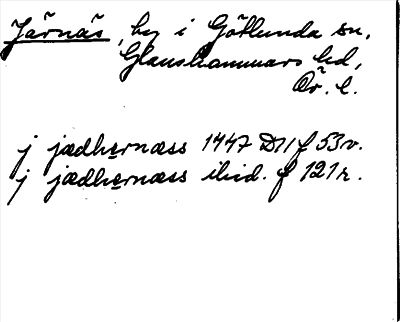 Järnäs, by i Götlunda sn,
Glanshammars hd,
Ör. l.
j jædhernæss 1447 D11 f 53v.
j jædhernæss ibid. f 121r.